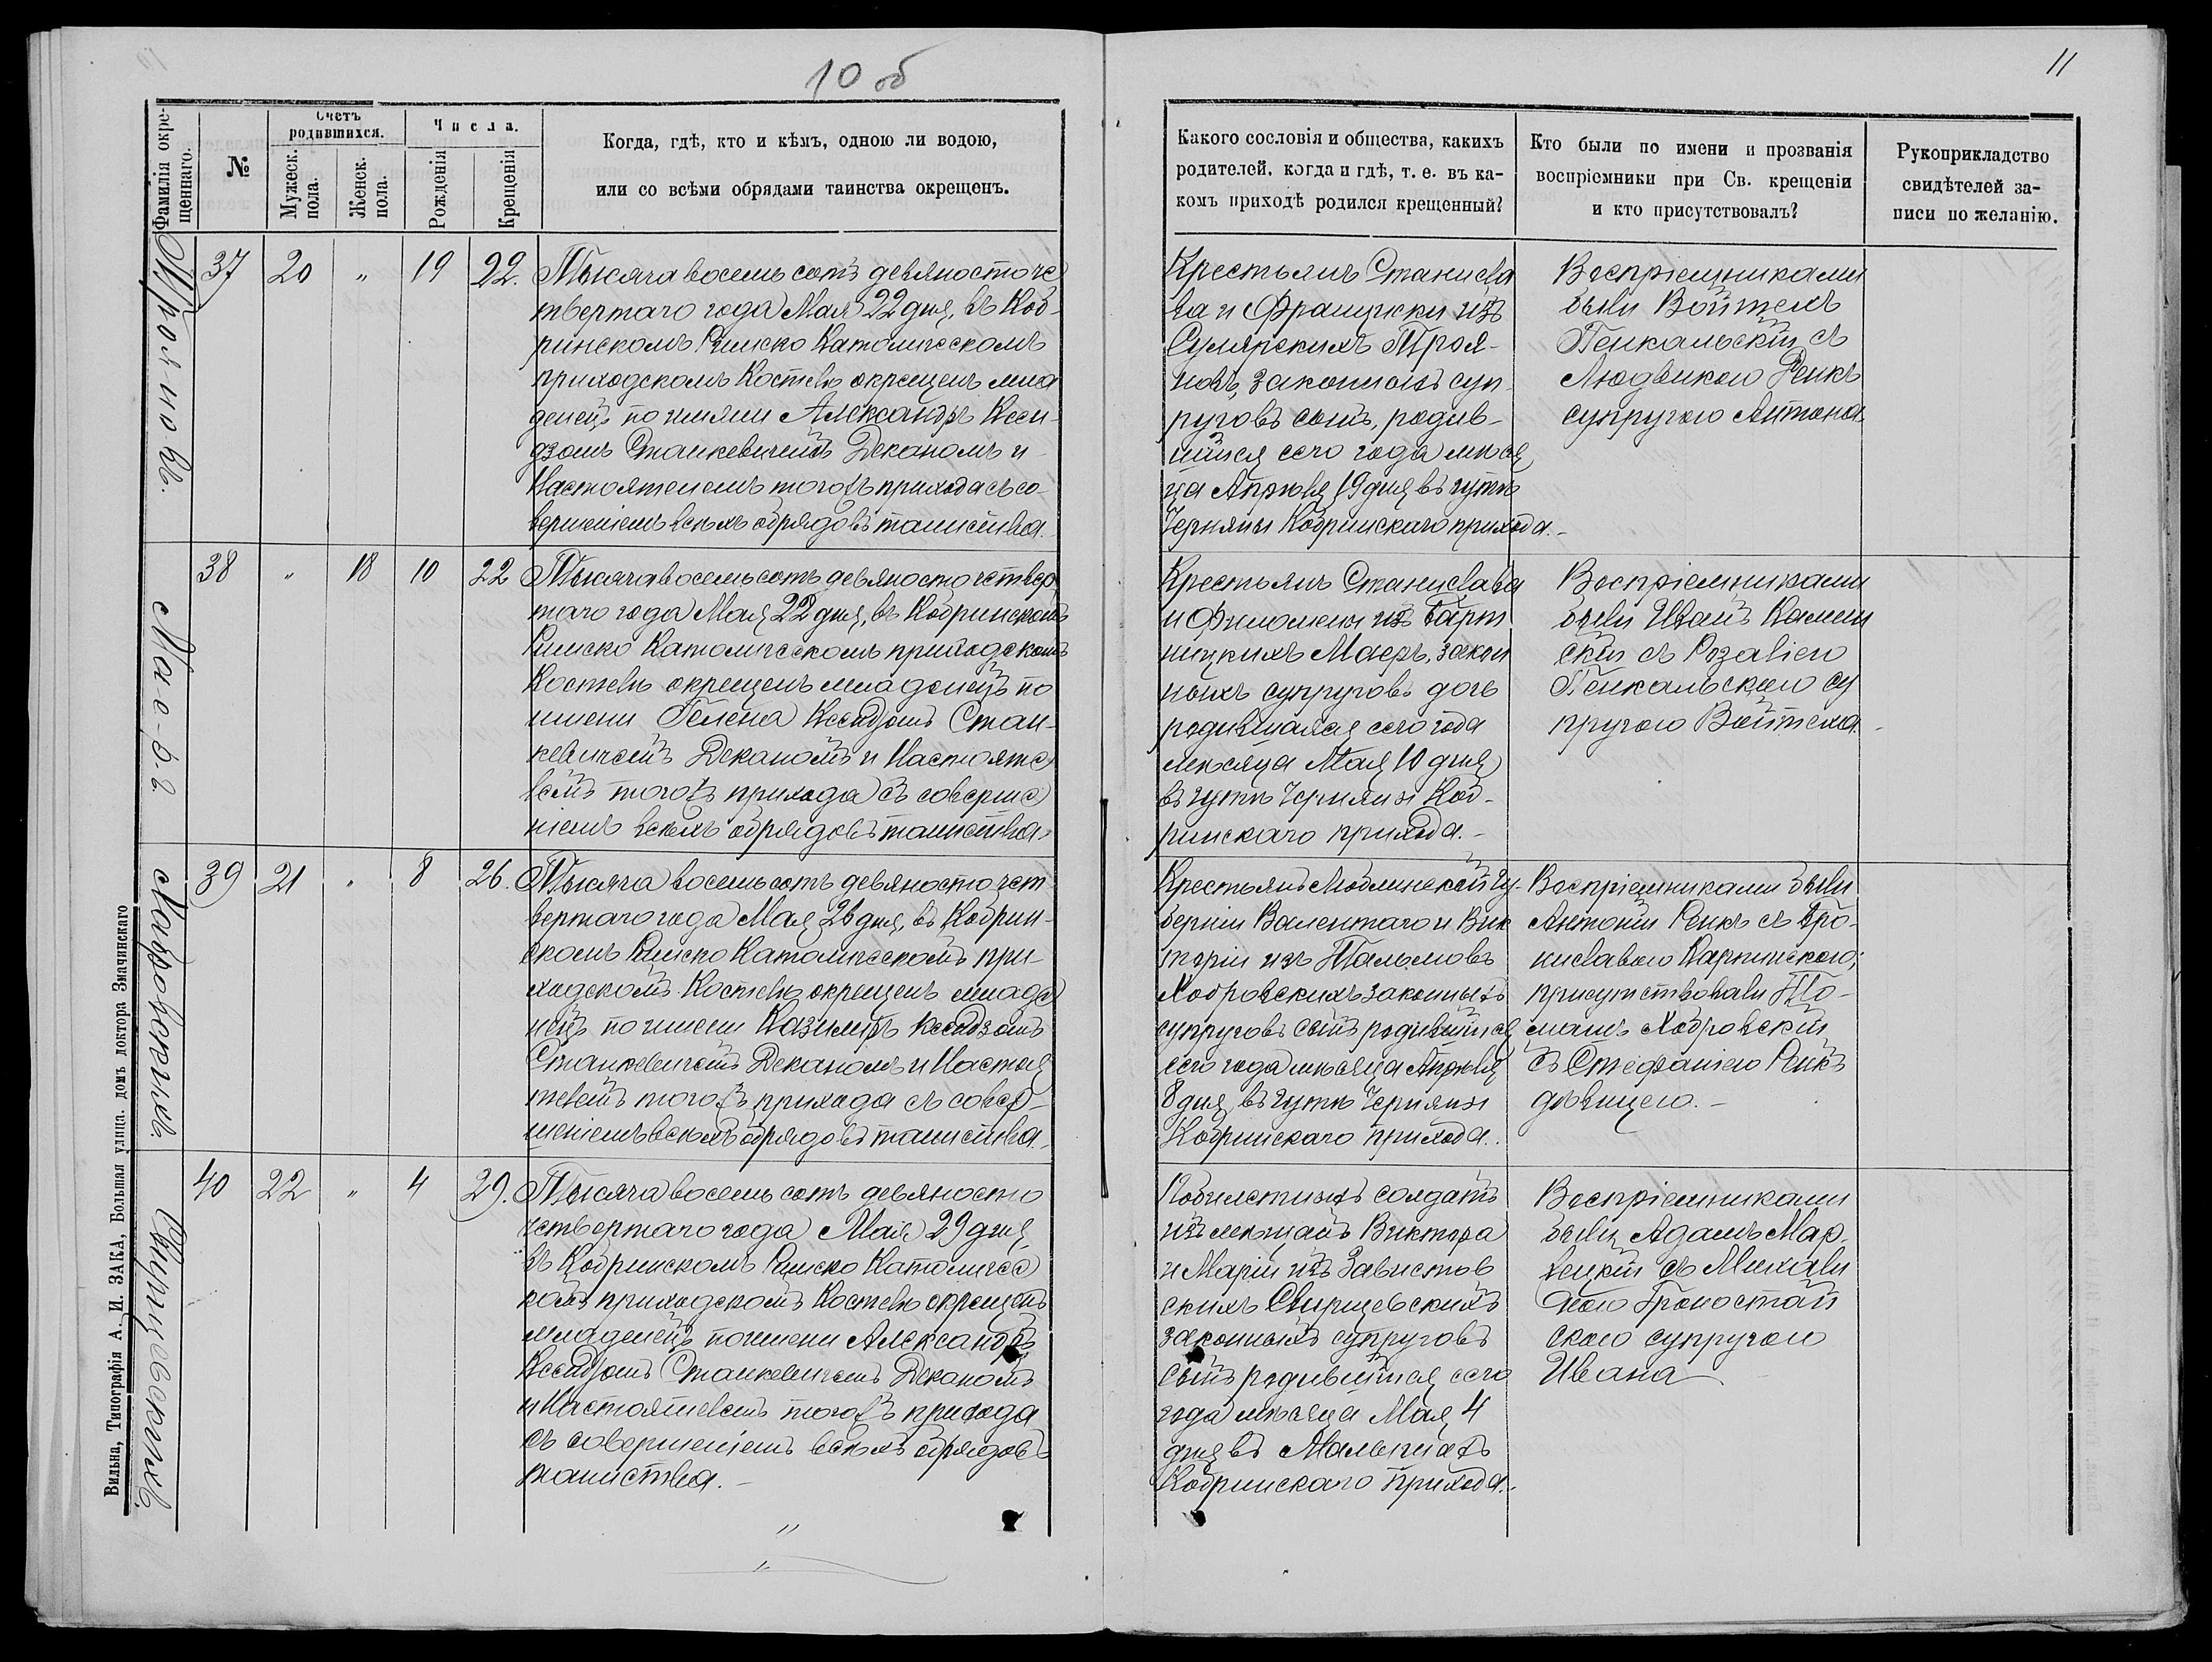 10 об
11
Фамилія окре-
щеннаго.
№
Счетъ
родившихся.
Мужеск.
пола.
Женск.
пола.
Числа.
Рожденія
Крещенія
Когда, гдѣ, кто и кѣмъ, одною ли водою,
или со всѣми обрядами таинства окрещенъ.
Какого сословія и общества, какихъ
родителей, когда и гдѣ, т. е. въ ка-
комъ приходѣ родился крещенный?
Кто были по имени и прозванія
воспріемники при Св. крещеніи
и кто присутствовалъ?
Рукоприкладство
свидѣтелей за-
писи по желанію.
Трояновъ.
37 20 " 19 22.
Тысяча восемь сотъ девяносто че
твертаго года Мая 22 дня, въ Коб-
ринскомъ Римско Католическомъ
приходскомъ Костелѣ окрещенъ мла
денецъ по имени Александръ Ксен-
дзомъ Станкевичемъ Деканомъ и
Настоятелемъ тогожъ прихода съ со-
вершеніемъ всѣхъ обрядовъ таинства.
Крестьянъ Станисла
ва и Францишки изъ
Троя-
новъ, законныхъ суп-
руговъ сынъ, родив-
шійся сего года мѣся
ца Апрѣля 19 дня въ гутѣ
Черняны Кобринскаго прихода.-
Воспріемниками
были Войтехъ
Пенкальскій съ
Людвикою Ренкъ
супругою Антона
Маеръ
38 " 18 10 22
Тысяча восемь сотъ девяносто четвер
таго года Мая 22 дня, въ Кобринскомъ
Римско Католическомъ приходскомъ
Костелѣ окрещенъ младенецъ по
имени Гелена Ксендзомъ Стан-
кевичемъ Деканомъ и Настояте
лемъ тогожъ прихода съ соверше
ніемъ всѣхъ обрядовъ таинства.
Крестьянъ Станислава
и Филомены изъ Барт
ницкихъ Маеръ, закон
ныхъ супруговъ дочь
родившаяся сего года
мѣсяца Мая 10 дня
въ гутѣ Черняны Коб-
ринскаго прихода.-
Воспріемниками
были Иванъ Камин
скій съ Розаліею
Пенкальскою су
пругою Войтеха.-
Хобровскихъ.
39 21 " 8 26.
Тысяча восемь сотъ девяносто чет
вертаго года Мая 26 дня, въ Кобрин-
скомъ Римско Католическомъ при-
ходскомъ Костелѣ окрещенъ младе
нецъ по имени Казиміръ Ксендзомъ
Станкевичемъ Деканомъ и Настоя
телемъ тогожъ прихода съ совер-
шеніемъ всѣхъ обрядовъ таинства.
Крестьянъ Люблинской Гу-
берніи Валентаго и Вик
торіи изъ
Хобровскихъ законныхъ
супруговъ сынъ родившійся
сего года мѣсяца Апрѣля
8 дня въ гутѣ Черняны
Кобринскаго прихода.
Воспріемниками были
Антоній Ренкъ съ Бро-
ниславою Карпинскою;
присутствовали То-
машъ Хобровскій
съ Стефаніею Ренкъ
дѣвицею.-
Свирщевскихъ.
40 22 " 4 29.
Тысяча восемь сотъ девяносто
четвертаго года Мая 29 дня
въ Кобринскомъ Римско Католичес
комъ приходскомъ Костелѣ окрещенъ
младенецъ по имени Александръ
Ксендзомъ Станкевичемъ Деканомъ
и Настоятелемъ тогожъ прихода
съ совершеніемъ всѣхъ обрядовъ
таинства.-
солдатъ
изъ мещанъ Виктора
и Маріи изъ Завистов
скихъ Свирщевскихъ
законныхъ супруговъ
сынъ родившійся сего
года мѣсяца Мая 4
дня въ
Кобринскаго прихода.
Воспріемниками
были Адамъ
съ Михали
ною Гроностай
скою супругою
Ивана
Вильна, Типографія А. И. ЗАКА, Большая улица. домъ доктора Змачинскаго